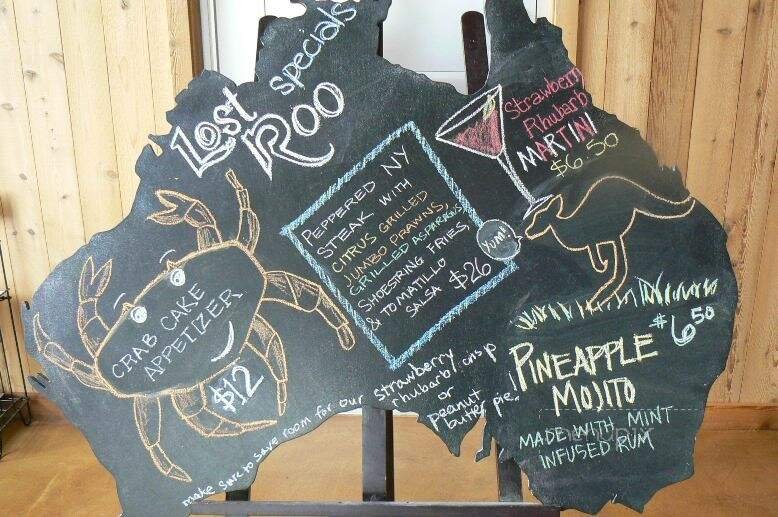 Lost
Roo
specials
Strawberry
Rhubarb
MARTINI
$6.50
PEPPERED NY
STEAK WITH
CITRUS GRILLED
JUMBO PRAWNS,
GRILLED ASPARAGUS
SHOESTRING FRIES,
& TOMATILLO
SALSA $26
YUM!
CRAB CAKE
APPETIZER
$12
PINEAPPLE
MOJITO
$6.50
MADE WITH MINT
INFUSED RUM
make sure to save room for our strawberry
rhubarb crisp
or
peanut
butter pie!